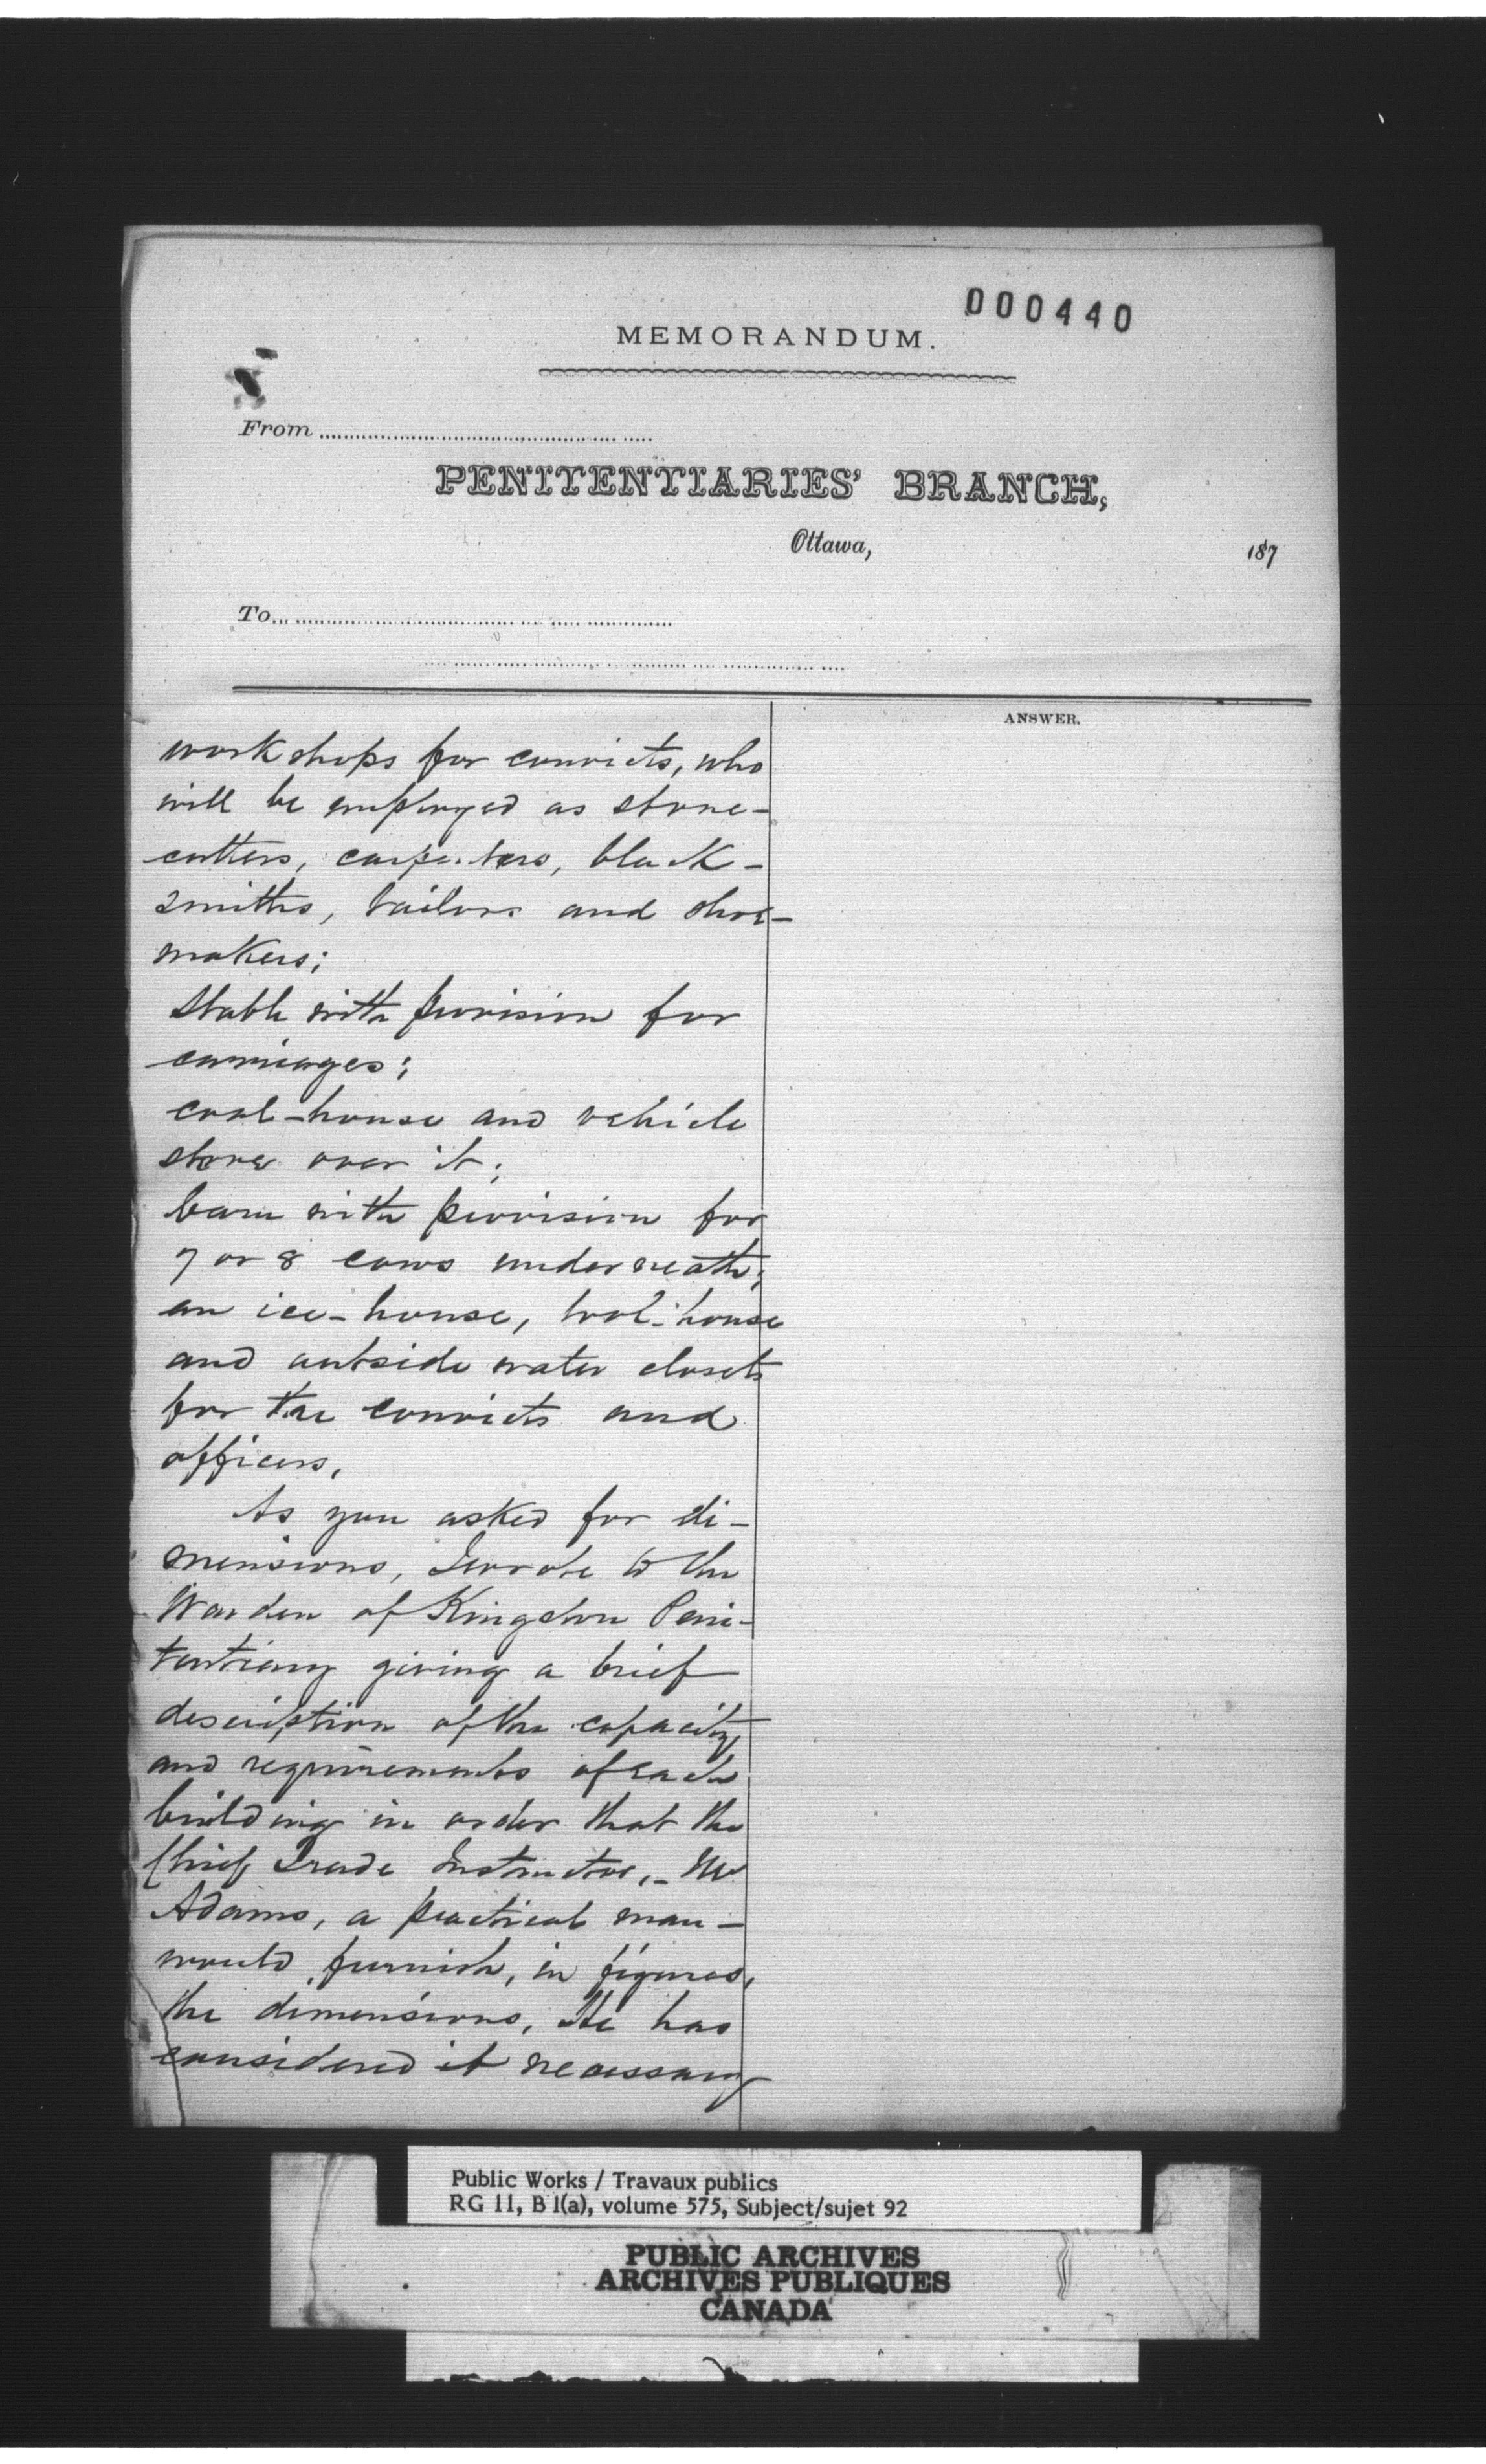 000440
MEMORANDUM.
From
PENITENTIARIES' BRANCH,
Ottawa, 187
To
ANSWER.
workshops for convicts, who
will be employed as stone-
cutters, carpenters, black-
smiths, tailors and shoe-
makers;
Stable with provision for
carriages;
coal-house and vehicle
store over it;
barn with provision for
7 or 8 cows underneath;
an ice-house, tool-house
and outside water closets
for the convicts and
officers.
As you asked for di-
mensions, I wrote to the
Warden of Kingston Peni-
tentiary giving a brief
description of the capacity
and requirements of each
building in order that the
Chief Trade Instructor, - Mr
Adams, a practical man -
would furnish, in figures,
the dimensions. He has
considered it necessary
Public Works / Travaux publics
RG 11, B 1(a), volume 575, Subject/sujet 92
PUBLIC ARCHIVES
ARCHIVES PUBLIQUES
CANADA